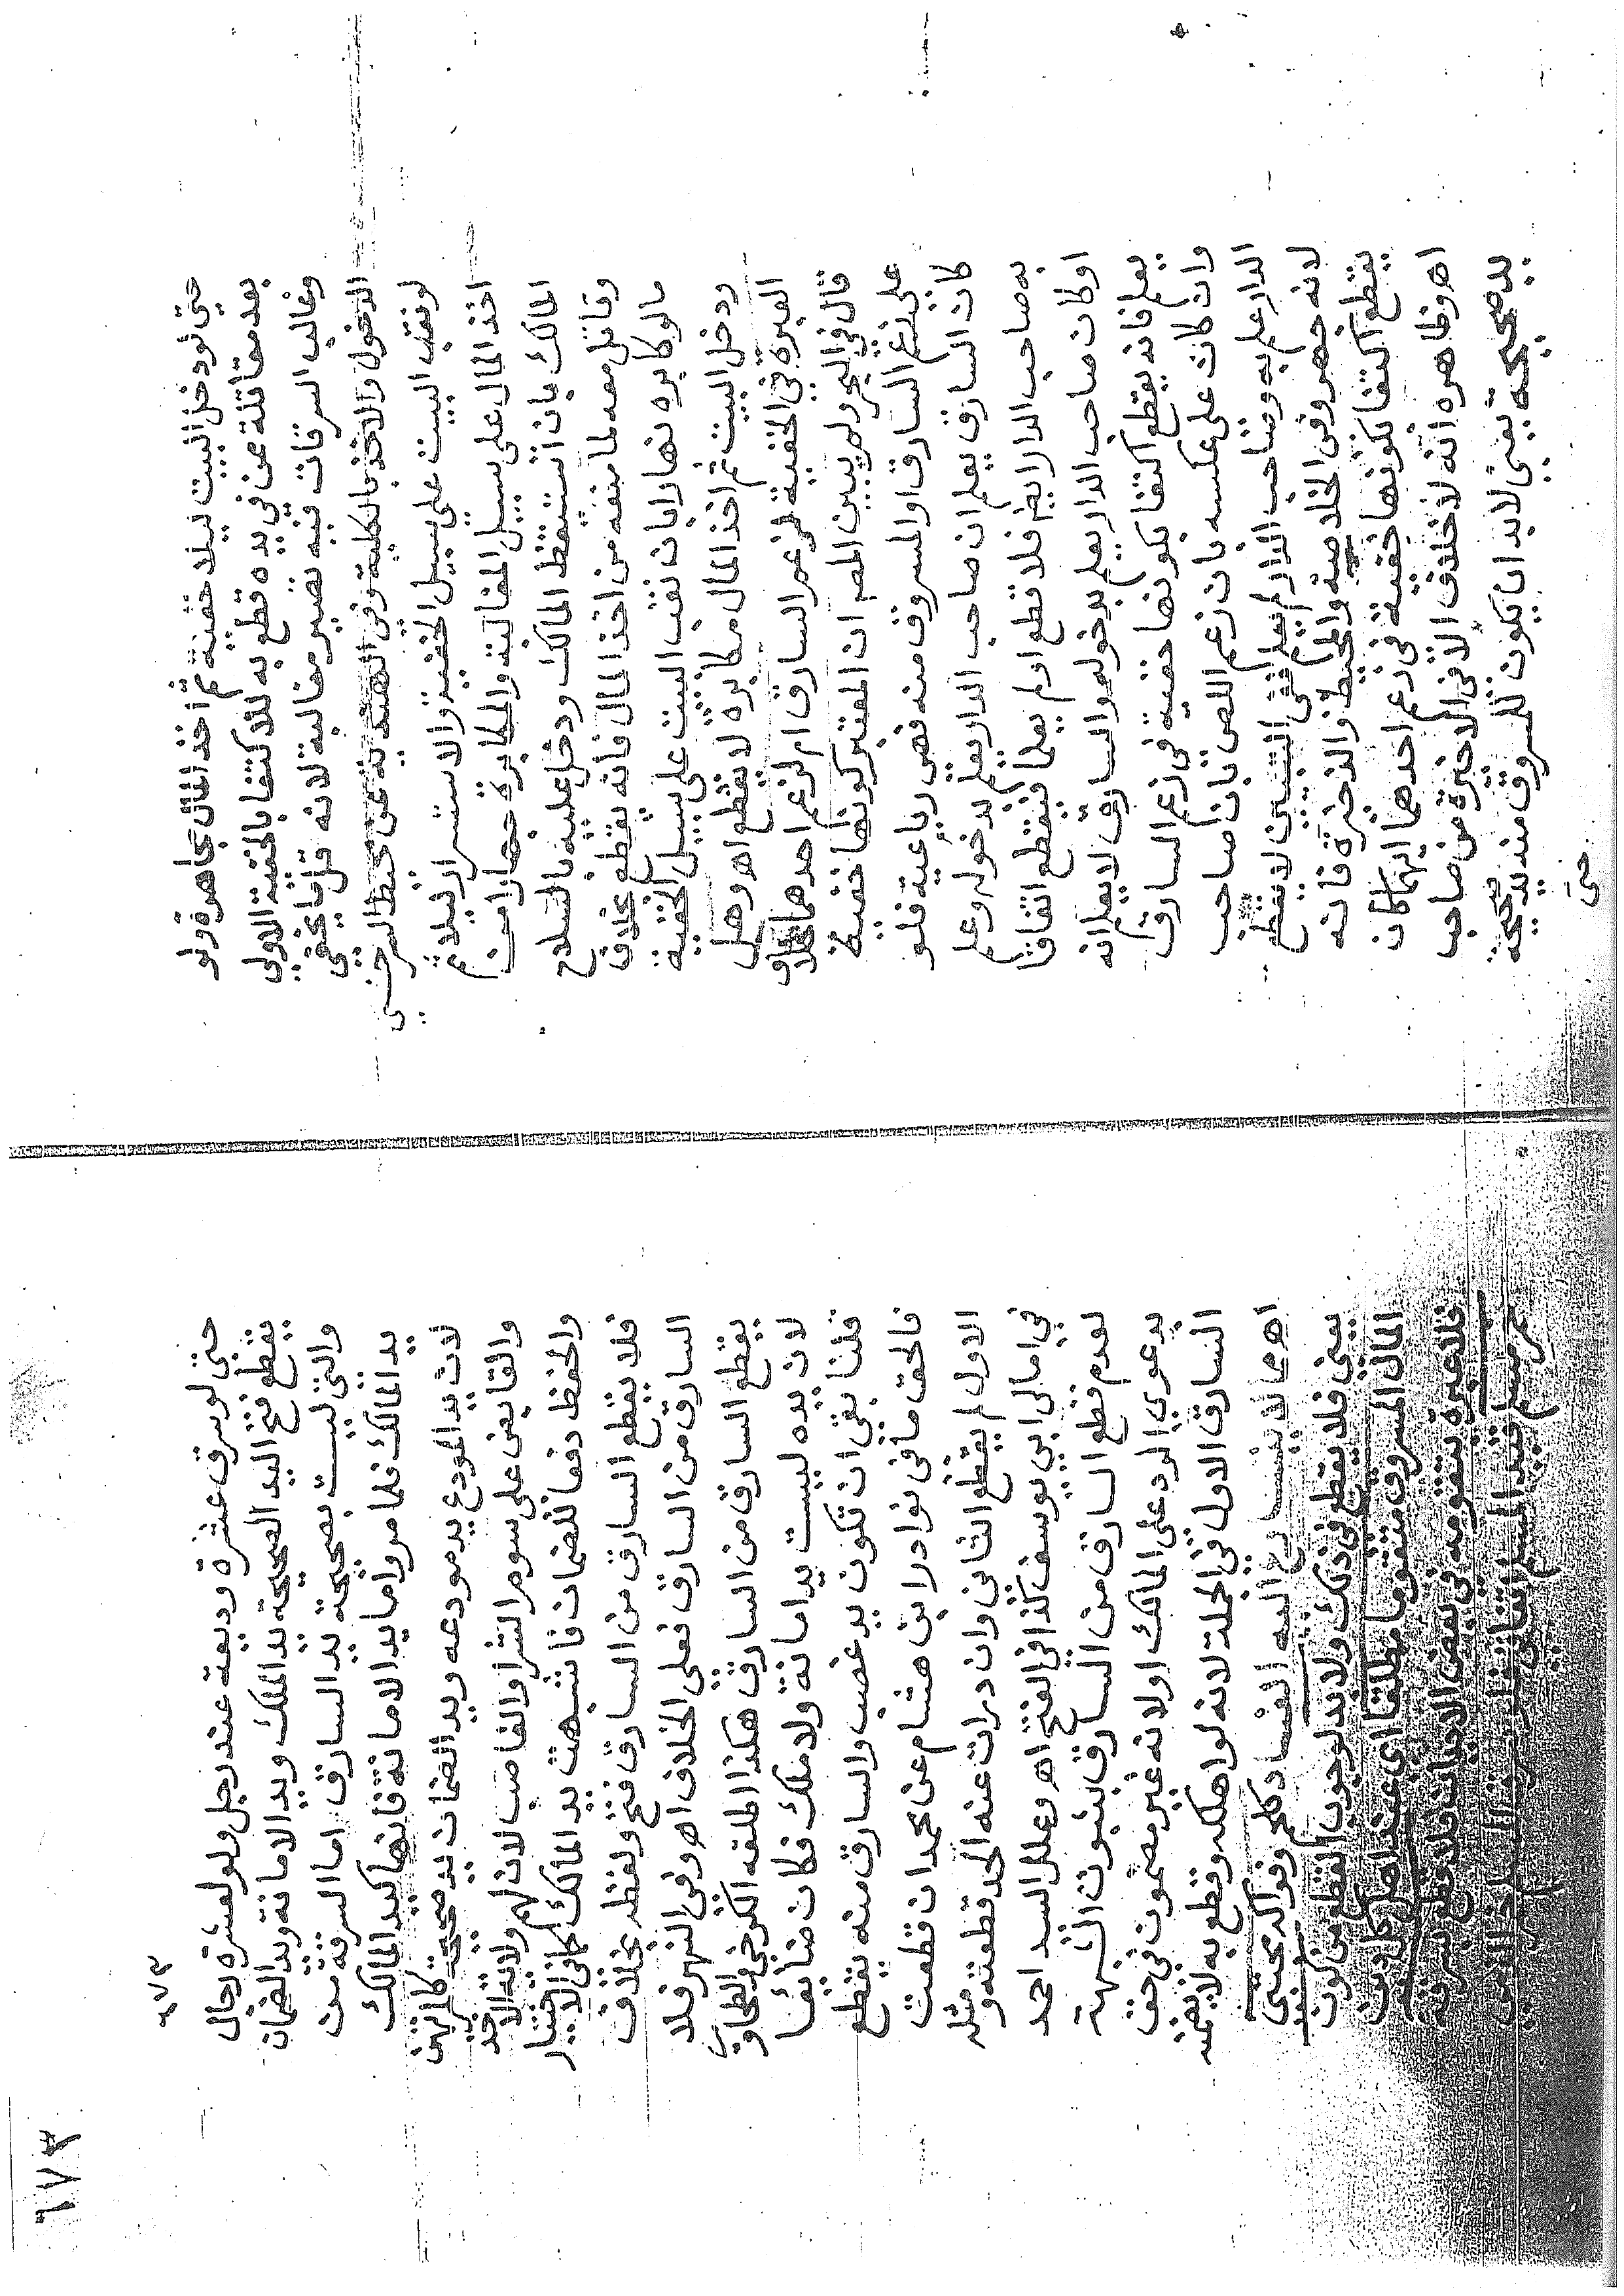 حتى لو دخل البيت ليلا خفية ثم اخذ المال مجاهرة ولو
بعد مقاتلة عن في يده قطع به للاكتفا بالخفية الاولى
وغالب السرقات فيه تصير مغالبة لانه قل ما يخفى
الدخول والاخذ بالكلية وفى الهندية عن محيط السرخسى
لو نقب البيت على سبيل الخفية والاستسرار ليلا ثم
اخذ المال على سبيل المغالبة والمكابرة جهارا من
المالك بان استيقظ المالك ودخل عليه بالسلاح
وقاتل معه لما منعه من اخذ المال فانه يقطع بخلاف
ما لو كابره نهارا بان نقب البيت على سبيل الخفية
ودخل البيت ثم اخذ المال مكابرة لا يقطع اهـ وهل
العبرة فى الخفية لزعم السارق ام لزعم احدهما خلاف
قال في البحر ولم يبين المصـ ان المعتبر كونها خفية
على زعم السارق او المسروق منه فهى رباعية فلو
كان السارق يعلم ان صاحب الدار يعلم بدخوله وعلم
به صاحب الدار ايضا فلا قطع او لم يعلما فيقطع اتفاقا
او كان صاحب الدار يعلم بدخوله والسارق لا يعلم انه
يعلم فانه يقطع اكتفا بكونها خفية في زعم السارق
وان كان على عكسه بان زعم اللص بان صاحب
الدار علم به وصاحب الدار لم يعلم ففى التبيين لا يقطع
لانه جهر وفى الخلاصة والمحيط والذخيرة فانه
يقطع اكتفا بكونها خفية فى زعم احدهما ايهما كان
اهـ وظاهره انه لا خلاف الا فى الاخيرة من صاحب
يد صحيحة يعنى لا بد ان يكون للمسروق منه يد صحيحة
حتى
٦٧٣
حتى لو سرق عشرة وديعة عند رجل ولو لعشرة رجال
يقطع فتح اليد الصحيحة يد الملك ويد الامانة ويد الضمان
والتى ليست بصحيحة يد السارق اما السرقة من
يد المالك فلما مر واما يد الامانة فانها كيد المالك
لان يد المودع يد مودعه ويد الضمان يد صحيحة كالمرتهن
والقابض على سوم الشرا والغاصب لان لهم ولاية الاخذ
والحفظ دفعا للضمان فاشبهت يد المالك كما فى الاختيار
فلا يقطع السارق من السارق فتح ولفظه بخلاف
السارق من السارق فعلى الخلاف اهـ وفى النهر فلا
يقطع السارق من السارق هكذا اطلقه الكرخى والطحاوى
لان يده ليست يد امانة ولا ملك فكان ضائعا
قلنا بقى ان تكون يد غصب والسارق منه يقطع
فالحق ما فى نوادر ابن هشام عن محمد ان قطعت
الاول لم يقطع الثانى وان درات عنه الحد قطعته ومثله
في امالى ابي يوسف كذا فى الفتح اهـ وعلل السيد احمد
لعدم قطع السارق من السارق بثبوت الشبهة
بدعوى الرد على المالك او لانه غير مضمون فى حق
السارق الاول فى الجملة لانه لو اهلكه وقطع به لا يضمنه
اهـ
يعنى فلا يقطع فى ذلك ولا بد لوجوب القطع من كون
المال المسروق متقوما مطلقا اى عند اهل كل دين
فلا عبرة بتقومه فى بعض الاديان فلا قطع بسرقة
خمر مسلم